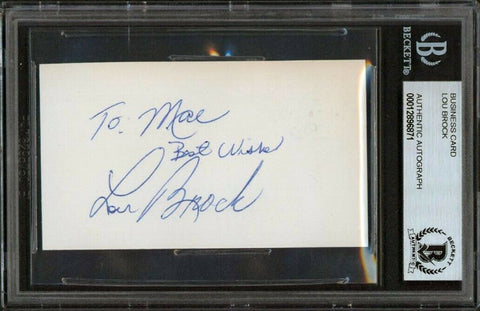 To: Mae
Best Wishes
Lou Brock
BECKETT®
BUSINESS CARD
LOU BROCK
AUTHENTIC AUTOGRAPH
00012896871
BECKETT
AUTHENTIC